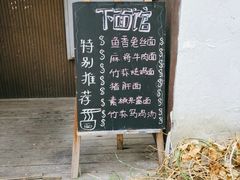 下面馆
特别推荐
$ 鱼香兔丝面
$ 麻辣牛肉面
$ 竹荪炖鸡面
$ 猪肝面
$ 素椒酱面
$ 竹荪乌鸡汤